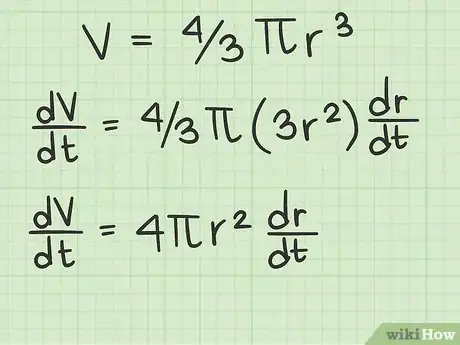 V = 4/3 πr³
dV/dt = 4/3 π(3r²) dr/dt
dV/dt = 4πr² dr/dt
wikiHow